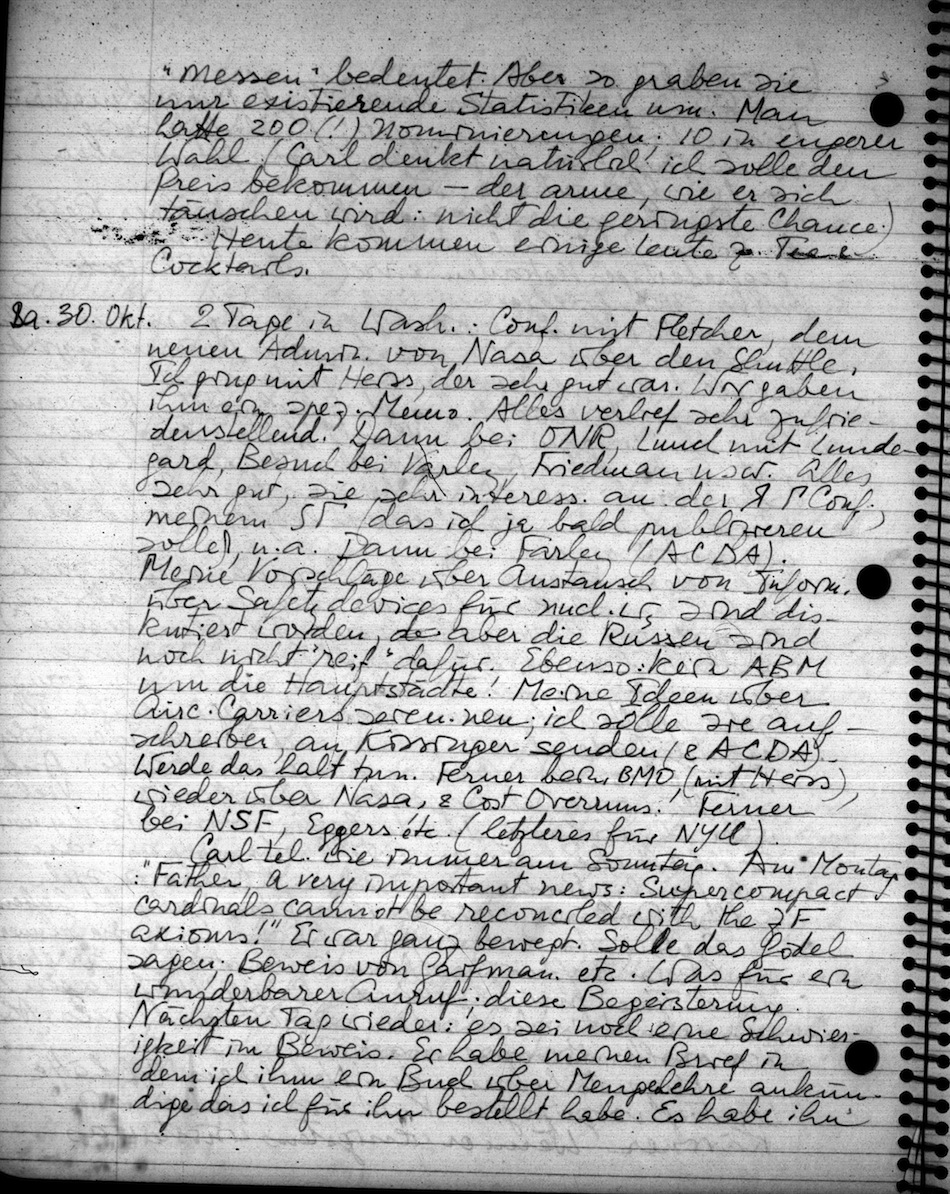 "messen" bedeutet. Aber so graben sie
nur existierende Statistiken um. Man
hatte 200 (!) Nominierungen; 10 in engerer
Wahl. (Carl denkt natürlich ich solle den
Preis bekommen – der arme, wie er sich
täuschen wird: nicht die geringste Chance.)
Heute kommen einige Leute z.
Cocktails.
Sa. 30. Okt. 2 Tage in Wash.: Conf. mit Fletcher, dem
neuen Admin. von Nasa über den Shuttle.
Ich ging mit Heiss, der sehr gut war. Wir gaben
ihm ein spez. Memo. Alles verlief sehr zufrie-
denstellend. Dann bei ONR, Lunch mit Lunde-
gard, Besuch bei Varley, Friedman usw. Alles
sehr gut, sie sehr interess. an der Conf.,
meinem (das ich ja bald publizieren
solle), u.a. Dann bei Farley (ACDA).
Meine Vorschläge über Austausch von Inform.
über Safety devices für nucl. sind dis-
kutiert worden, aber die Russen sind
noch nicht "reif" dafür. Ebenso: kein ABM
um die Hauptstädte! Meine Ideen über
Airc. Carriers seien neu; ich solle sie auf-
schreiben, an Kissinger senden (& ACDA).
Werde das halt tun. Ferner beim BMO, (mit Heiss),
wieder über Nasa, & Cost Overruns. Ferner
bei NSF, Eggers etc. (letzteres für NYU).
Carl tel. wie immer am Sonntag. Am Montag
: "Father, a very important news: Supercompact
cardinals cannot be reconciled with the ZF
axioms!" Er war ganz bewegt. Solle das Gödel
sagen. Beweis von Gaifman. etc. Was für ein
wunderbarer Anruf; diese Begeisterung.
Nächsten Tag wieder: es sei noch eine Schwier-
igkeit im Beweis. Er habe meinen Brief in
dem ich ihm ein Buch über Mengenlehre ankün-
dige das ich für ihn bestellt habe. Es habe ihn